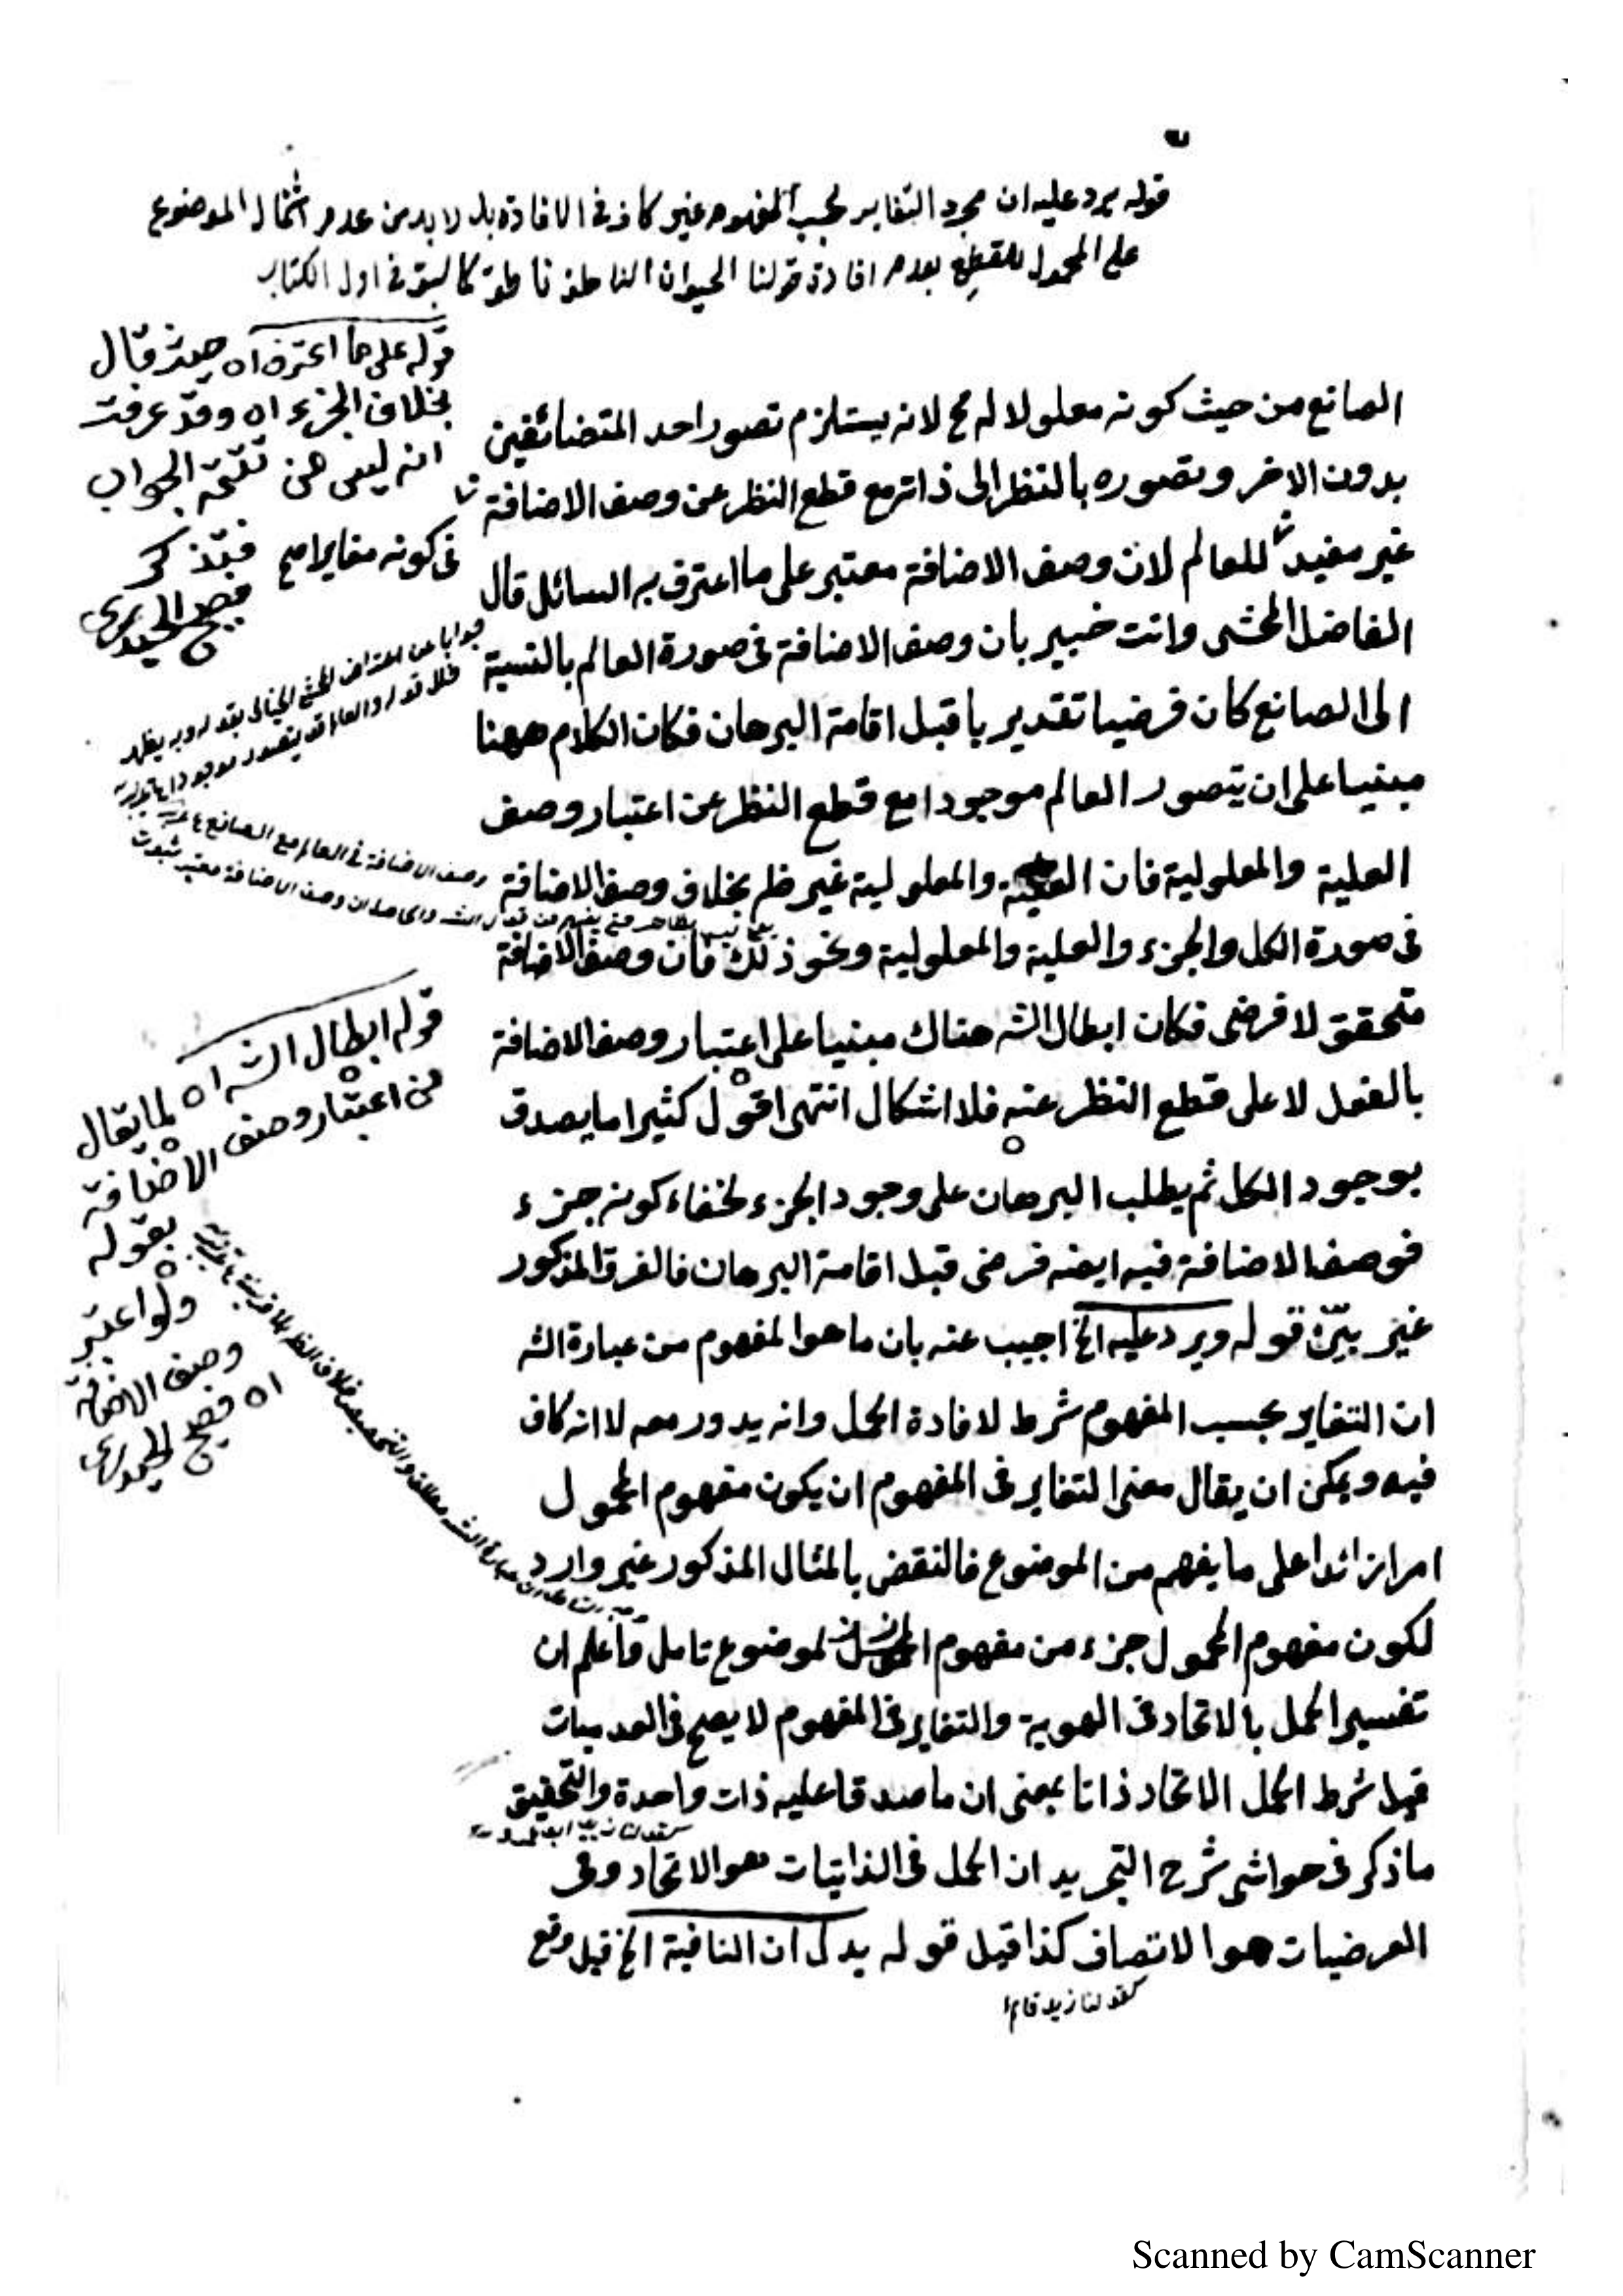 قوله يرد عليه ان مجرد التغاير بحسب المفهوم غير كاف فى الافادة بل لا بد من عدم اشتمال الموضوع
على المحمول للقطع بعدم افادة قولنا الحيوان الناطق ناطق كما سبق فى اول الكتاب
قوله على ما اعترف اه حيث قال
بخلاف الجزء اه وقد عرفت
انه ليس من تتمة الجواب
فى كونه مغايرا صح فتذكر
فصيح الحيدرى
الصانع من حيث كونه معلولا له مح لانه يستلزم تصور احد المتضائفين
بدون الاخر وتصوره بالنظر الى ذاته مع قطع النظر عن وصف الاضافة
غير مفيد للعالم لان وصف الاضافة معتبر على ما اعترف به السائل قال
الفاضل المحشى وانت خبير بان وصف الاضافة فى صورة العالم بالنسبة
الى الصانع كان فرضيا تقديريا قبل اقامة البرهان فكان الكلام ههنا
مبنيا على ان يتصور العالم موجودا مع قطع النظر عن اعتبار وصف
العلية والمعلولية فان العلية والمعلولية غير ظ بخلاف وصف الاضافة
فى صورة الكل والجزء والعلية والمعلولية ونحو ذلك فان وصف الاضافة
متحقق لا فرضى فكان ابطال الشه هناك مبنيا على اعتبار وصف الاضافة
بالفعل لا على قطع النظر عنه فلا اشكال انتهى اقول كثيرا ما يصدق
بوجود الكل ثم يطلب البرهان على وجود الجزء لخفاء كونه جزء
فوصف الاضافة فيه ايضه فرضى قبل اقامة البرهان فالفرق المذكور
غير بيّن قوله ويرد عليه الخ اجيب عنه بان ما هو المفهوم من عبارة الشه
ان التغاير بحسب المفهوم شرط لافادة الحمل وانه يدور معه لا انه كاف
فيه ويمكن ان يقال معنى التغاير فى المفهوم ان يكون مفهوم المحمول
امرا زائدا على ما يفهم من الموضوع فالنقض بالمثال المذكور غير وارد
لكون مفهوم المحمول جزء من مفهوم الموضوع تامل واعلم ان
تفسير الحمل بالاتحاد فى الهوية والتغاير فى المفهوم لا يصح فى العدميات
قيل شرط الحمل الاتحاد ذاتا بمعنى ان ما صدقا عليه ذات واحدة والتحقيق
ما ذكر فى حواشى شرح التجريد ان الحمل فى الذاتيات هو الاتحاد وفى
العرضيات هو الاتصاف كذا قيل قوله يدل ان النافية الخ قيل وقع
كقولنا زيد قام
قوله ابطال الشه اه لما يقال
من اعتبار وصف الاضافة
بقوله
ولو اعتبر
وصف الاضافة
اه فصيح الحيدرى